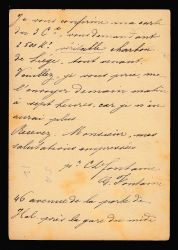 Je vous confirme ma carte
des 3 Ct, vous demandant
1500 K. véritable charbon
de Liège, tout venant.
Veuillez, je vous prie me
l'envoyer demain matin
à sept heures, car je n'en
aurai plus
Recevez, Monsieur, mes
salutations empressées
pr Ch. fontaine
G. Fontaine
46 avenue de la porte de
Hal près la gare du midi